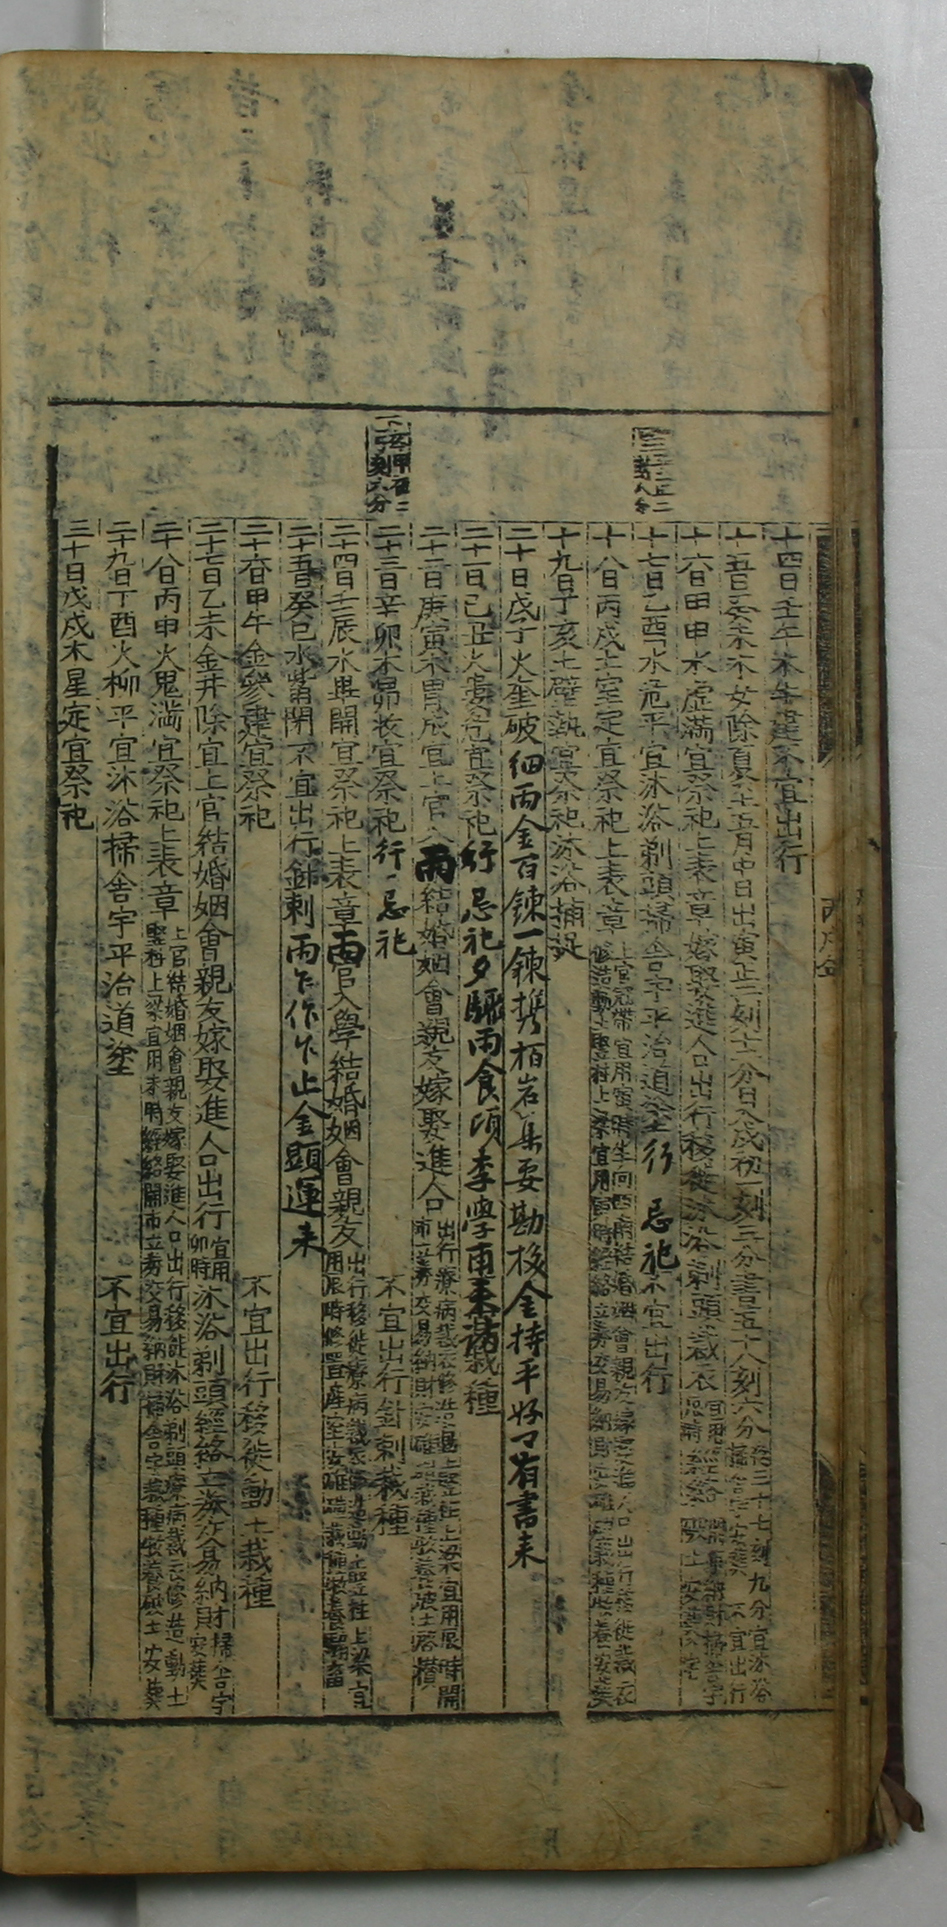 十四日壬午木牛建不宜出行
十五日癸未木女除夏至五月中日出寅正三刻十六分日入戌初一刻三分晝五十八刻六分夜三十七刻九分宜沐浴掃舍宇安葬不宜出行
十六日甲申水虛滿宜祭祀上表章嫁娶進人口出行移徙沐浴剃頭裁衣
十七日乙酉水危平宜沐浴剃頭掃舍宇平治道塗 行 忌祀 不宜出行
十八日丙戌土室定宜祭祀上表章上官冠帶宜用寅時 結婚姻會親友嫁娶進人口出行移徙裁衣修造動土豎柱上梁宜用寅時經絡立券交易納財安碓磑栽種牧養安葬
十九日丁亥土壁執宜祭祀沐浴捕捉
二十日戊子火奎破 細雨金百鍊一鍊携栢岩集要勘校金持平好了有書來
二十一日己丑火婁危宜祭祀 行 忌祀夕驟雨食頃李學甫來 栽種
二十二日庚寅木胃成宜上官入 雨 結婚姻會親友嫁娶進人口出行療病裁衣修造動土豎柱上梁宜用辰時開市立券交易納財安碓磑栽種牧養破土啓攢
二十三日辛卯木昴收宜祭祀 行 忌祀 不宜出行針刺栽種
二十四日壬辰水畢開宜祭祀上表章 雨 官入學結婚姻會親友出行移徙療病裁衣修造動土豎柱上梁宜用辰時修置產室安碓磑栽種牧養納畜
二十五日癸巳水觜閉不宜出行針刺 雨乍作乍止金顯運來
二十六日甲午金參建宜祭祀 不宜出行移徙動土栽種
二十七日乙未金井除宜上官結婚姻會親友嫁娶進人口出行宜用卯時沐浴剃頭經絡立券交易納財掃舍宇安葬
二十八日丙申火鬼滿宜祭祀上表章上官結婚姻會親友嫁娶進人口出行移徙沐浴剃頭療病裁衣修造動土豎柱上梁宜用未時經絡開市立券交易納財掃舍宇栽種牧養破土安葬
二十九日丁酉火柳平宜沐浴掃舍宇平治道塗 不宜出行
三十日戊戌木星定宜祭祀